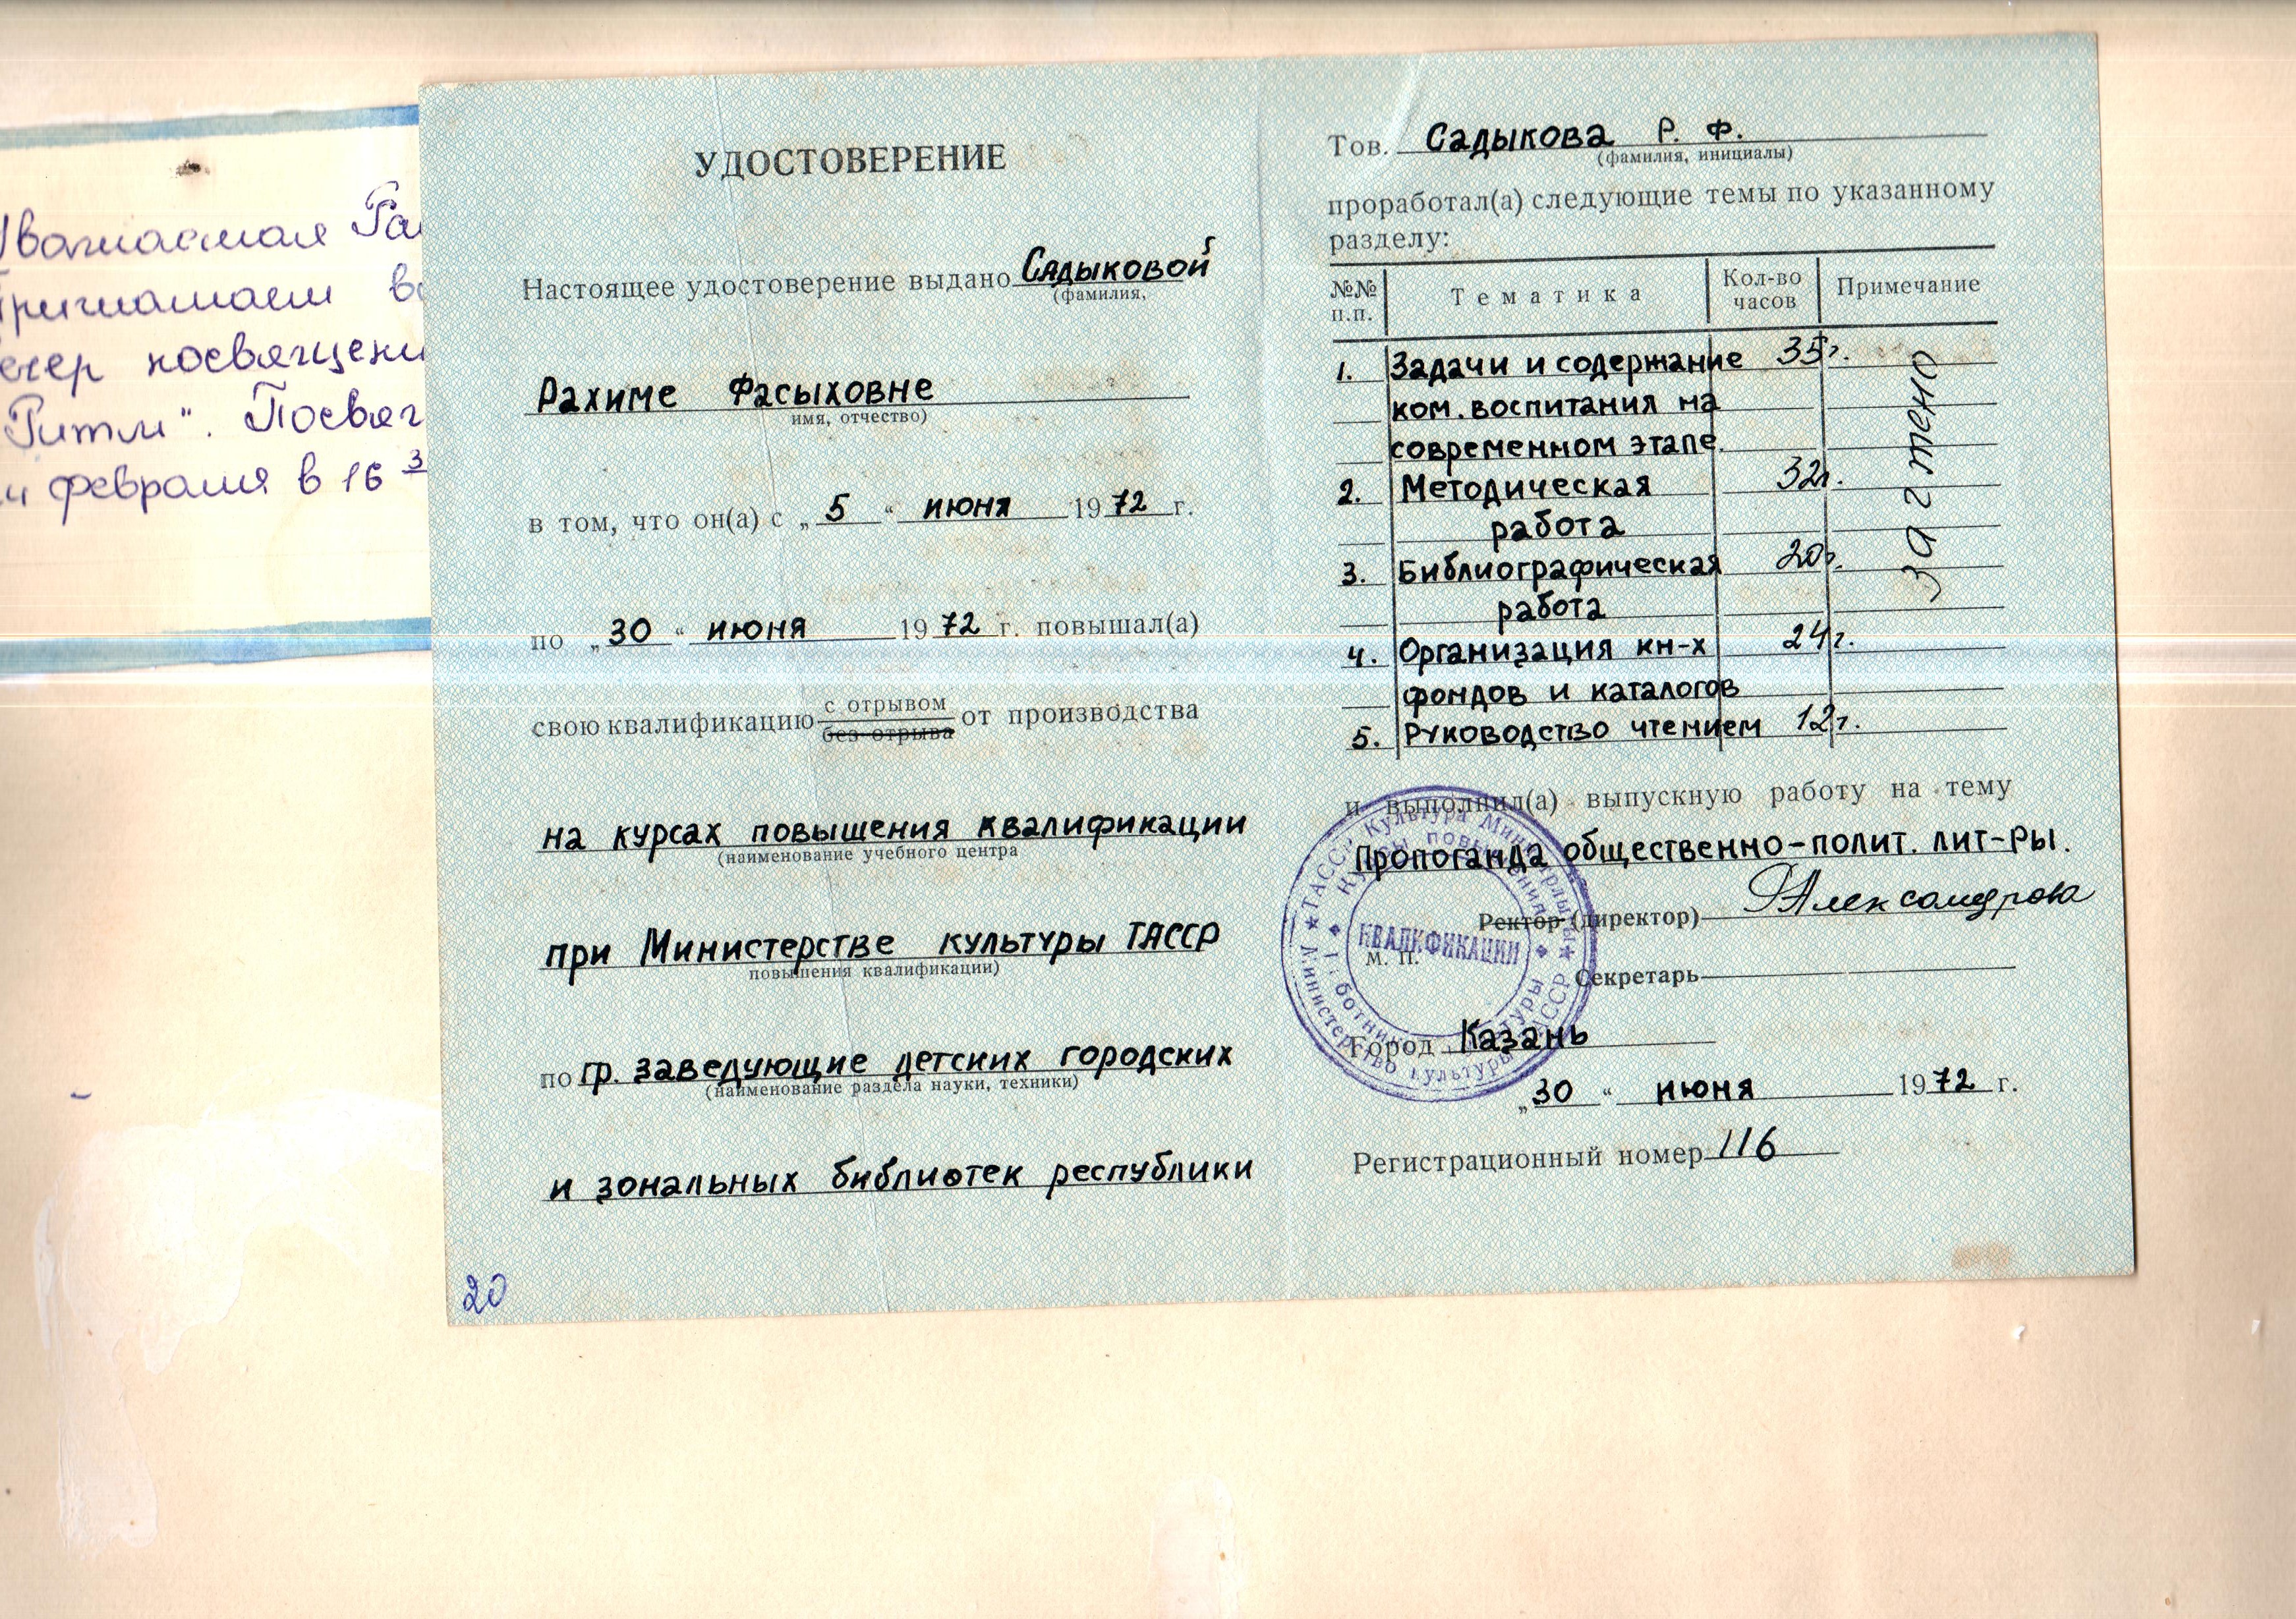 Уважаемая
Приглашаем
вечер посвящени
Ритм". Посвящ
февраля в 16 3
УДОСТОВЕРЕНИЕ
Настоящее удостоверение выдано Садыковой
(фамилия,
Рахиме Фасыховне
имя, отчество)
в том, что он(а) с „5“ июня 1972 г.
по „30“ июня 1972 г. повышал(а)
свою квалификацию с отрывом от производства
без отрыва
на курсах повышения квалификации
(наименование учебного центра
при Министерстве культуры ТАССР
повышения квалификации)
по гр. заведующие детских городских
(наименование раздела науки, техники)
и зональных библиотек республики
20
Тов. Садыкова Р. Ф.
(фамилия, инициалы)
проработал(а) следующие темы по указанному
разделу:
№№ п.п. Тематика Кол-во часов Примечание
1. Задачи и содержание 35г.
ком. воспитания на
современном этапе.
2. Методическая 32г.
работа
3. Библиографическая 20г.
работа
4. Организация кн-х 24г.
фондов и каталогов
5. Руководство чтением 12г.
зачтено
и выполнил(а) выпускную работу на тему
Пропоганда общественно-полит. лит-ры.
Ректор (директор) Александрова
М. П.
Секретарь
Город Казань
„30“ июня 1972 г.
Регистрационный номер 116
ТАССР Культура Министрлыгы
Министерство культуры ТАССР
КВАЛИФИКАЦИИ